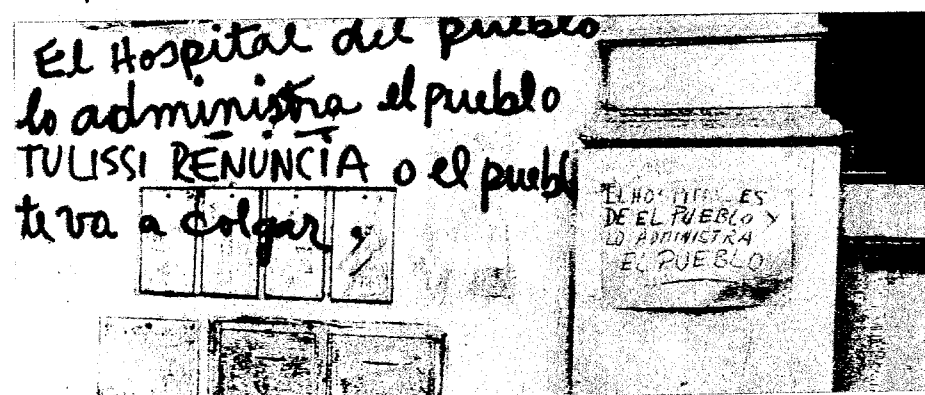 El Hospital del pueblo
lo administra el pueblo
TULISSI RENUNCIA o el pueblo
te va a colgar.
"EL HOSPITAL ES
DE EL PUEBLO Y
LO ADMINISTRA
EL PUEBLO